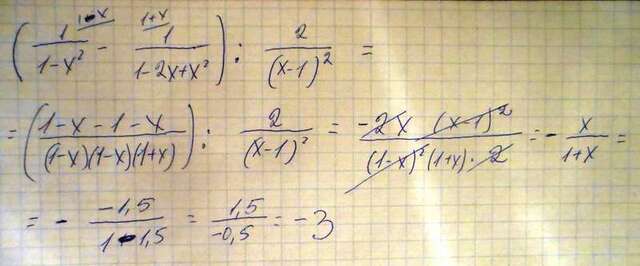 (1/(1-x²) ^(1-x) - 1/(1-2x+x²) ^(1+x)) : 2/(x-1)² =
= ((1-x-1-x)/((1-x)(1-x)(1+x))) : 2/(x-1)² = (-2x (x-1)²)/((1-x)²(1+x)·2) = - x/(1+x) =
= - (-1,5)/(1-1,5) = 1,5/(-0,5) = -3